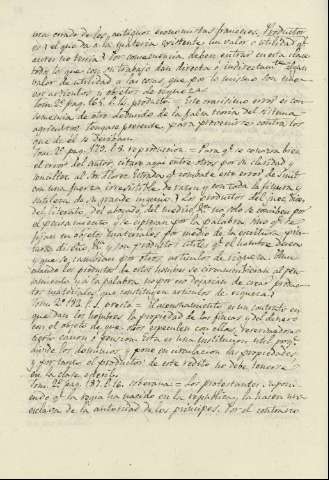 mas errado de los antiguos economistas franceses. Productor
es el que da a la materia existente un valor o utilidad qe
antes no tenia; por consecuencia deben entrar en esta clase
todo lo que con su trabajo dan directa o indirectamte algun
valor de utilidad a las cosas, que por lo mismo son nuevos
articulos u objetos de riqueza.
Tom. 2º pag. 163. l. 12. producto = Este crasisimo error es con-
secuencia de otro dimanado de la falsa teoria del sistema
agricultor. Tengase presente, para prevenirse contra los
que de el se derivan.
Tom. 2º pag. 172. l. 8. reproduccion = Para qe se conozca bien
el error del autor, citare aqui entre otros por su claridad y
sencillez al Sr. Florez Estrada, qe combate este error de Smit
con una fuerza irresistible de razon y con toda la finura y
sutileza de su grande ingenio: "Los productos del sacerdote,
del literato, del abogado, del medico, &c. no solo se cambian por
el pensamiento, y se espresan por la palabra, sino qe se
fijan en objetos materiales por medio de la escritura, pin-
tura, de oro, &c. y son productos utiles qe el hombre desea
y que se cambian por otros articulos de riqueza. Aun
cuando los productos de estos hombres se circunscribieran al pen-
samiento y a la palabra no por eso dejarian de crear produc-
tos materiales que constituyen articulos de riqueza."
Tom. 2º pag. 182. l. 2. oresta = El arrendamiento es un contrato en
que dan los hombres la propiedad de las fincas y del dinero
con el objeto de que otros especulen con ellas, reservandose
cierto canon o pension. Esta es una institucion util porqe
divide los dominios, y pone en circulacion las propiedades
y por tanto el producto de este redito no debe tenerse
en la clase de
Tom. 2º pag. 187. l. 16. soberana = Los protestantes, supon-
endo qe la iglesia ha nacido en la republica, la hacen una
esclava de la autoridad de los principes. Por el contrario